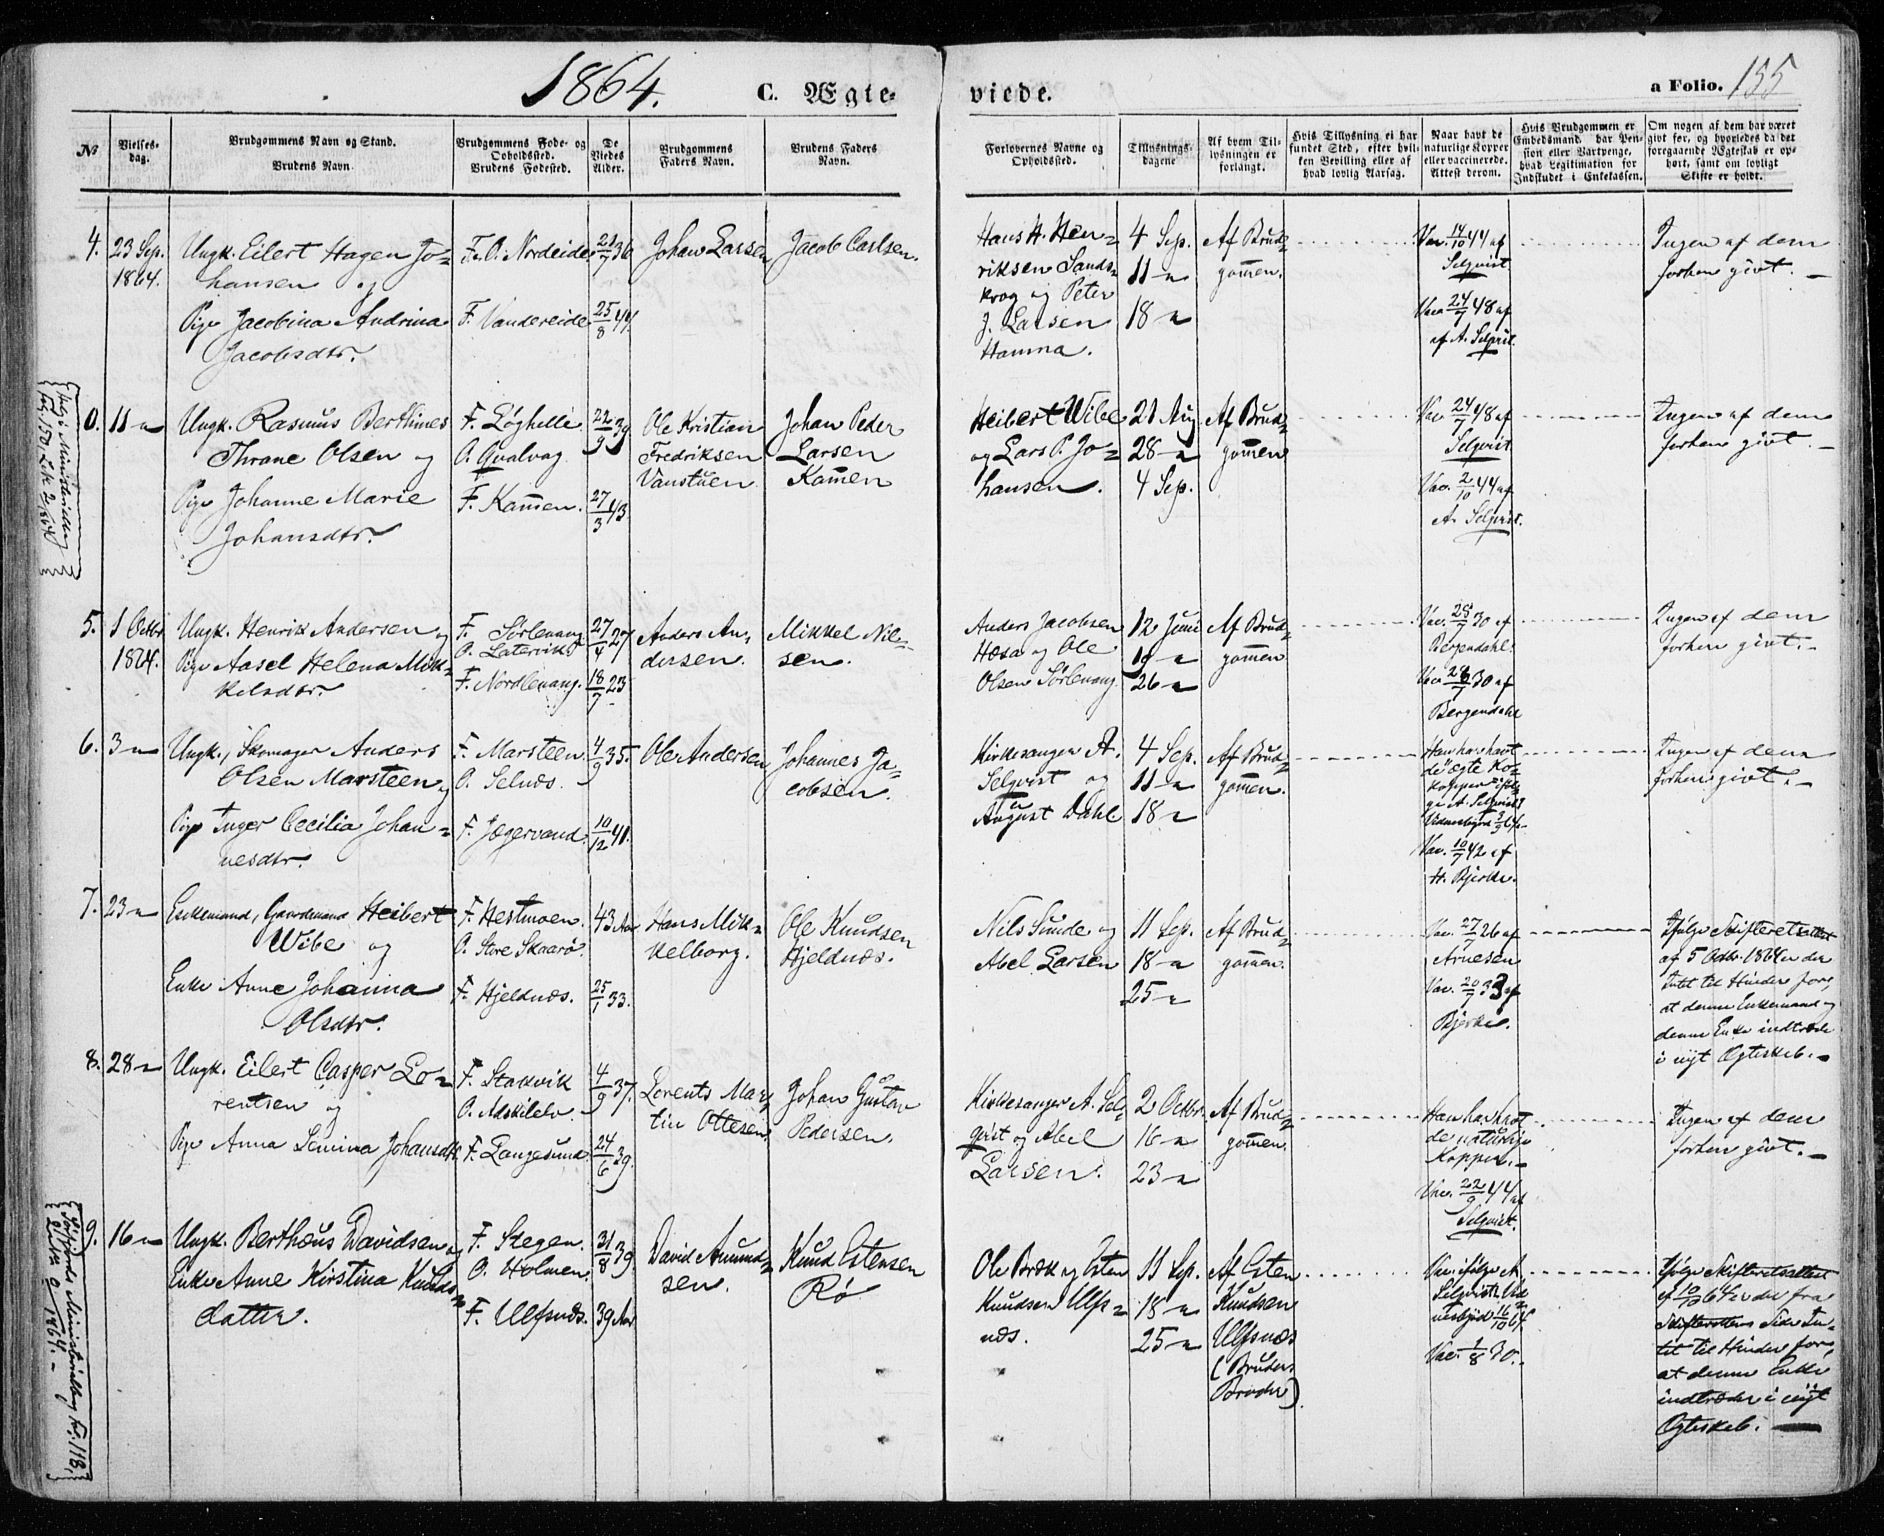 1864.
C. Ægte-
viede.
a Folio. 155
№
Vielses-
dag.
Brudgommens Navn og Stand.
Brudens Navn.
Brudgommens Føde- og
Opholdssted.
Brudens Fødested.
De
Viedes
Alder.
Brudgommens
Faders Navn.
Brudens Faders
Navn.
Forlovernes Navne og
Opholdssted.
Tillysnings-
dagene
Af hvem Til-
lysningen er
forlangt.
Hvis Tillysning ei har
fundet Sted, efter hvil-
ken Bevilling eller af
hvad lovlig Aarsag.
Naar havt de
naturlige Kopper
eller vaccinerede.
Attest derom.
Hvis Brudgommen er
Embedsmand, har Pen-
sion eller Vartpenge,
hvad Legitimation for
Indskudet i Enkekassen.
Om nogen af dem har været
givt før, og hvorledes da det
foregaaende Ægteskab er op-
hørt, samt om lovligt
Skifte er holdt.
4. 23 Sep. 1864.
Ungk. Eilert Hagen Jo-
hansen og
Pige Jacobina Andrina
Jacobsdtr.
F. O. Nordeide
F. Vandereide
21/7 36
25/8 44
Johan Larsen
Jacob Carlsen.
Hans H. Hen-
riksen Sands-
krog og Peter
J. Larsen
Hamna.
4 Sep.
11 –
18 –
Af Brud-
gommen.
Vac. 14/10 44 af
Selqvist
Vac. 24/7 48 af
af A. Selqvist.
Ingen af dem
forhen givt.
0. 11 –
Ungk. Rasmus Berthines
Thrane Olsen og
Pige Johanne Marie
Johansdtr.
F. Løghelle
O. Qvalvag
F. Kammen.
22/9 39
27/3 43.
Ole Kristian
Fredriksen
Vanstuen
Johan Peder
Larsen
Kammen
Heibert Wibe
og Lars P. Jo-
hansen.
21 Aug
28 –
4 Sep.
Af Brud-
gommen
Vac. 24/7 48 af
Selqvist
Vac. 2/10 44 af
A. Selqvist.
Ingen af dem
forhen givt.
5. 1 Octbr 1864.
Ungk. Henrik Andersen og
Pige Aasel Helena Mik-
kelsdtr.
F. Sørlenang
O. Latervik
F. Nordlenang.
27/4 27
18/7 23
Anders An-
dersen.
Mikkel Nil-
sen.
Anders Jacobsen
Hæsa og Ole
Olsen Sørlenang
12 Juni
19 –
26 –
Af Brud-
gommen.
Vac. 28/7 30 af
Bergendahl.
Vac 28/7 30 af
Bergendahl
Ingen af dem
forhen givt.
6. 3 –
Ungk., Skomager Anders
Olsen Marsteen og
Pige Inger Cecilia Johan-
nesdtr.
F. Marsteen
O. Selnæs.
F. Jægervand.
4/9 35.
10/12 41.
Ole Andersen
Johannes Ja-
cobsen.
Kirkesanger A.
Selqvist og
August Dahl.
4 Sep.
11 –
18 –
Af Brud-
gommen.
Han har havt
de ægte Ko-
kopper ifølge
A. Selqvists
Vidnesbyrd
Vac. 10/7 42 af
H. Bjerke.
Ingen af dem
forhen givt.
7. 23 –
Enkemand, Gaardmand Heibert
Wibe og
Enke Anne Johanna
Olsdtr.
F. Hestmoen.
O. Store Skaarø.
F. Hjeldnæs.
43 Aar
25/1 33.
Hans Mik-
kelborg.
Ole Knudsen
Hjeldnæs.
Nils Sunde og
Abel Larsen
11 Sep.
18 –
25 –
Af Brud-
gommen.
Vac. 27/7 26 af
Arnesen
Vac. 20/7 33 af
Bjerke.
Ifølge Skifteretsattest
af 5 Octbr. 1864 er der
Intet til Hinder for,
at denne Enkemand og
denne Enke indtræde
i nyt Ægteskab.
8. 28 –
Ungk. Eilert Casper Lo-
rentsen og
Pige Anna Lemina Johansdtr.
F. Stakvik
O. Adskilelv
F. Langesund.
4/9 37.
24/6 39.
Lorents Mar-
tin Ottesen.
Johan Gustav
Pedersen.
Kirkesanger A. Sel-
qvist og Abel
Larsen.
2 Octbr.
16 –
23 –
Af Brud-
gommen.
Han har havt
de naturlige
Kopper.
Vac. 22/9 44 af
Selqvist.
Ingen af dem
forhen givt.
9. 16 –
Ungk. Berthæus Davidsen og
Enke Anne Kirstina Knuds-
datter.
F. Stegen.
O. Holmen.
F. Ulfsnæs.
31/8 39
39 Aar
David Amund-
sen.
Knud Estensen
Rø
Ole Bræk og Esten
Knudsen Ulfs-
næs.
11 Sep.
18 –
25 –
Af Esten
Knudsen
Ulfsnæs
(Brudens
Broder)
Vac. ifølge A.
Selqvists Vid-
nesbyrd 16/10 64
Vac. 1/8 30.
Ifølge Skifteretsattest
af 10/10 64 er der fra
Skifterettens Side In-
tet til Hinder for,
at denne Enke
indtræder i nyt
Ægteskab.